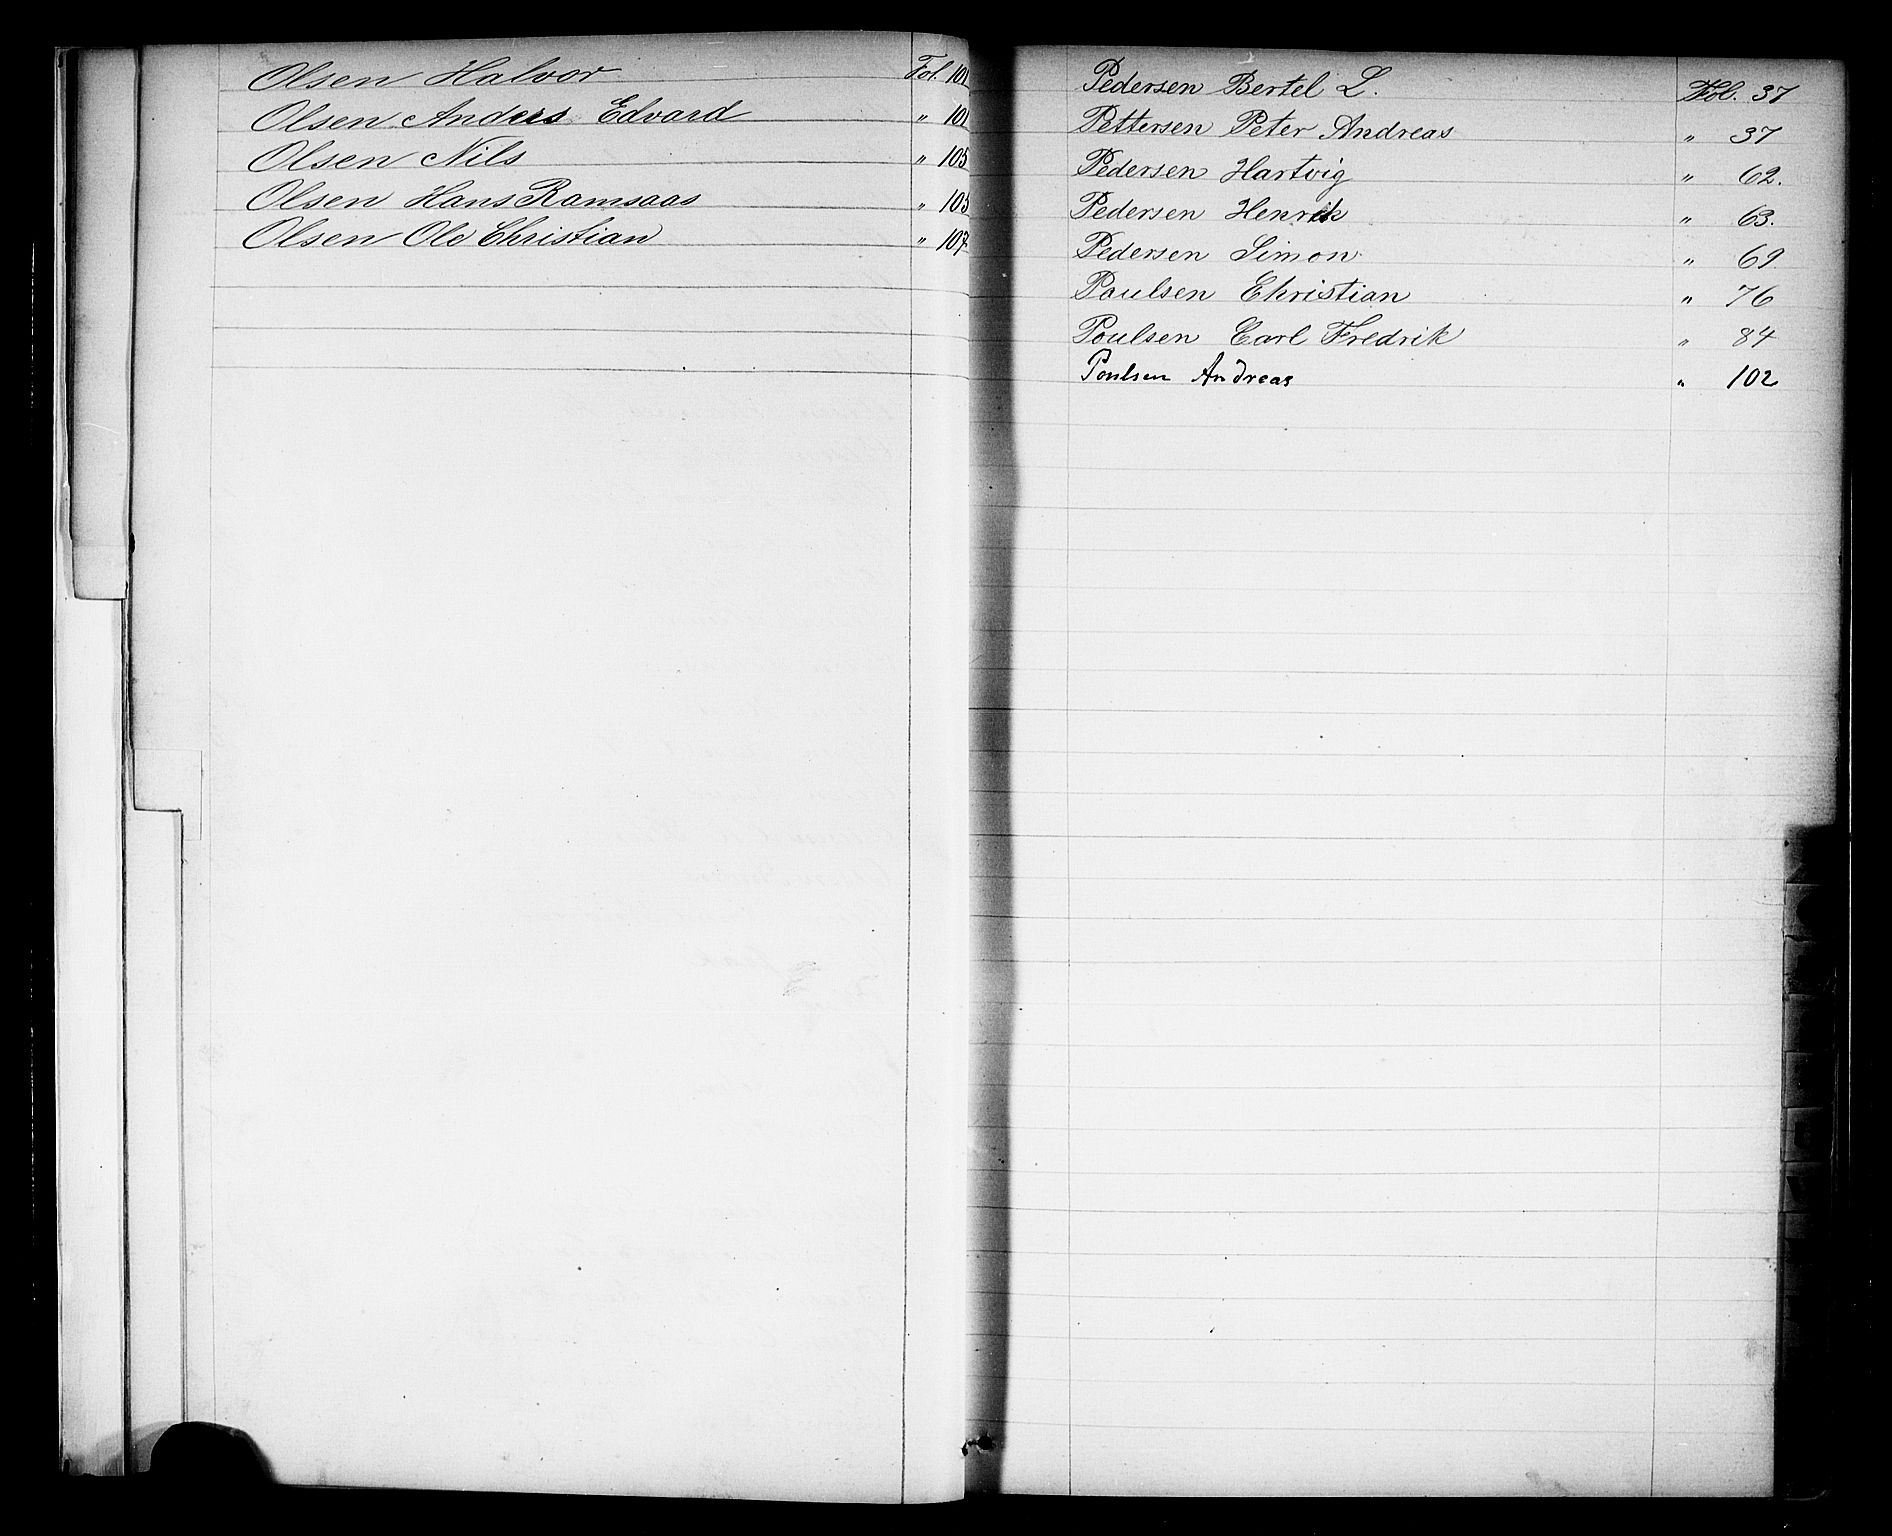 Olsen Halvor Fol. 101
Olsen Anders Edvard " 101
Olsen Nils " 105
Olsen Hans Ramsaas " 105
Olsen Ole Christian " 107
Pedersen Bertel L. Fol. 37
Pettersen Peter Andreas " 37
Pedersen Hartvig " 62.
Pedersen Henrik " 63.
Pedersen Simon " 69.
Paulsen Christian " 76
Poulsen Carl Fredrik " 84
Poulsen Andreas " 102